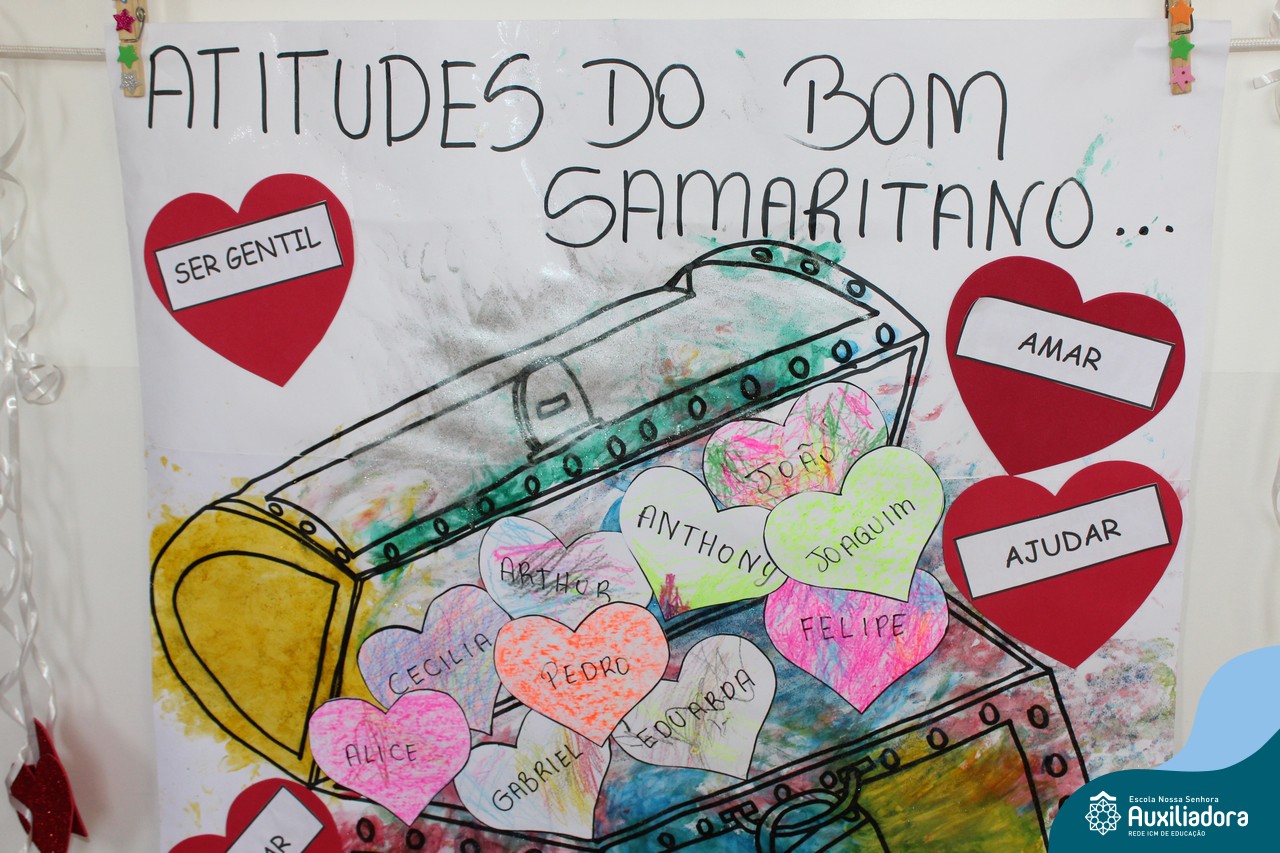 ATITUDES DO BOM
SAMARITANO...
SER GENTIL
AMAR
AJUDAR
JOÃO
JOAQUIM
ANTHONY
ARTHUR
FELIPE
CECILIA
PEDRO
EDUARDA
ALICE
GABRIEL
Escola Nossa Senhora
Auxiliadora
REDE ICM DE EDUCAÇÃO